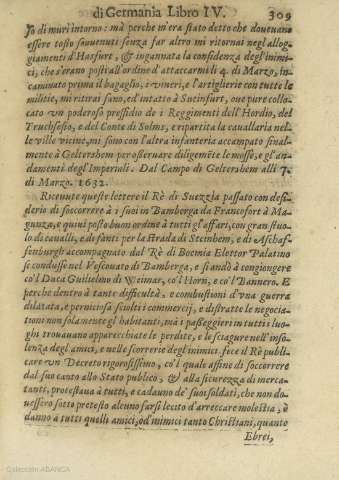 di Germania Libro IV. 309
zo di muri intorno: mà perche m'era stato detto che doueuano
essere tosto souuenuti senza far altro mi ritornai negl'allog-
giamenti d'Hasfurt, & ingannata la confidenza degl'inimi-
ci, che s'erano posti all'ordine d'attaccarmi li 4. di Marzo, in-
caminato prima il bagaglio, i viueri, e l'artiglierie con tutte le
militie, mi ritirai sano, ed intatto à Sueinfurt, oue pure collo-
cato vn poderoso pressidio de i Regimenti dell'Hordio, del
Truchsesio, e del Conte di Solms, e ripartita la cauallaria nel-
le ville vicine, mi sono con l'altra infanteria accampato final-
mente à Geltershem per osseruare diligemẽte le mosse, e gl'an-
damenti degl'Imperiali. Dal Campo di Geltershem alli 7.
di Marzo. 1632.
Riceuute queste lettere il Rè di Suezzia passato con desi-
derio di soccorrere à i suoi in Bamberga da Francofort à Ma-
gunza, e quiui posto buon ordine à tutti gl'affari, con gran stuo-
lo di caualli, e di fanti per la strada di Steinhem, e di Aschaf-
fenburgh accompagnato dal Rè di Boemia Elettor Palatino
se condusse nel Vescouato di Bamberga, e si andò à congiongere
co'l Duca Guilielmo di Weimar, co'l Horn, e co'l Bannero. E
perche dentro à tante difficultà, e combustioni d'vna guerra
dilatata, e perniciosa sciolti i commercij, e distratte le negocia-
tioni non solamente gl'habitanti, mà i passeggieri in tutti i luo-
ghi trouauano apparecchiate le perdite, e le sciagure nell'inso-
lenza degl'amici, e nelle scorrerie degl'inimici. fece il Rè publi-
care vn Decreto rigorosissimo, co'l quale affine di soccorrere
dal suo canto allo Stato publico, & alla sicurezza di merca-
tanti, protestaua à tutti, e cadauno de' suoi soldati, che non do-
uessero sotto pretesto alcuno farsi lecito d'arreccare molestia, è
danno à tutti quelli amici, òd'inimici tanto Christiani, quanto
Ebrei,
Colección ABANCA